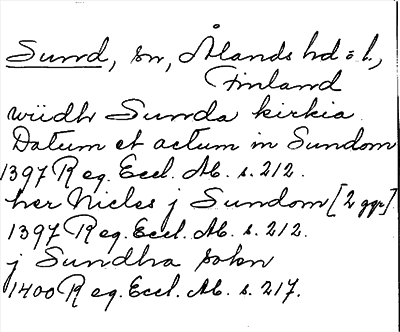 Sund, sn, Ålands hd o. l.,
Finland
wiidh Sunda kirkia
Datum et actum in Sundom
1397 Reg. Eccl. Ab. s. 212.
her Niclcs j Sundom [2 ggr]
1397 Reg. Eccl. Ab. s. 212.
j Sundha sokn
1400 Reg. Eccl. Ab. s. 217.